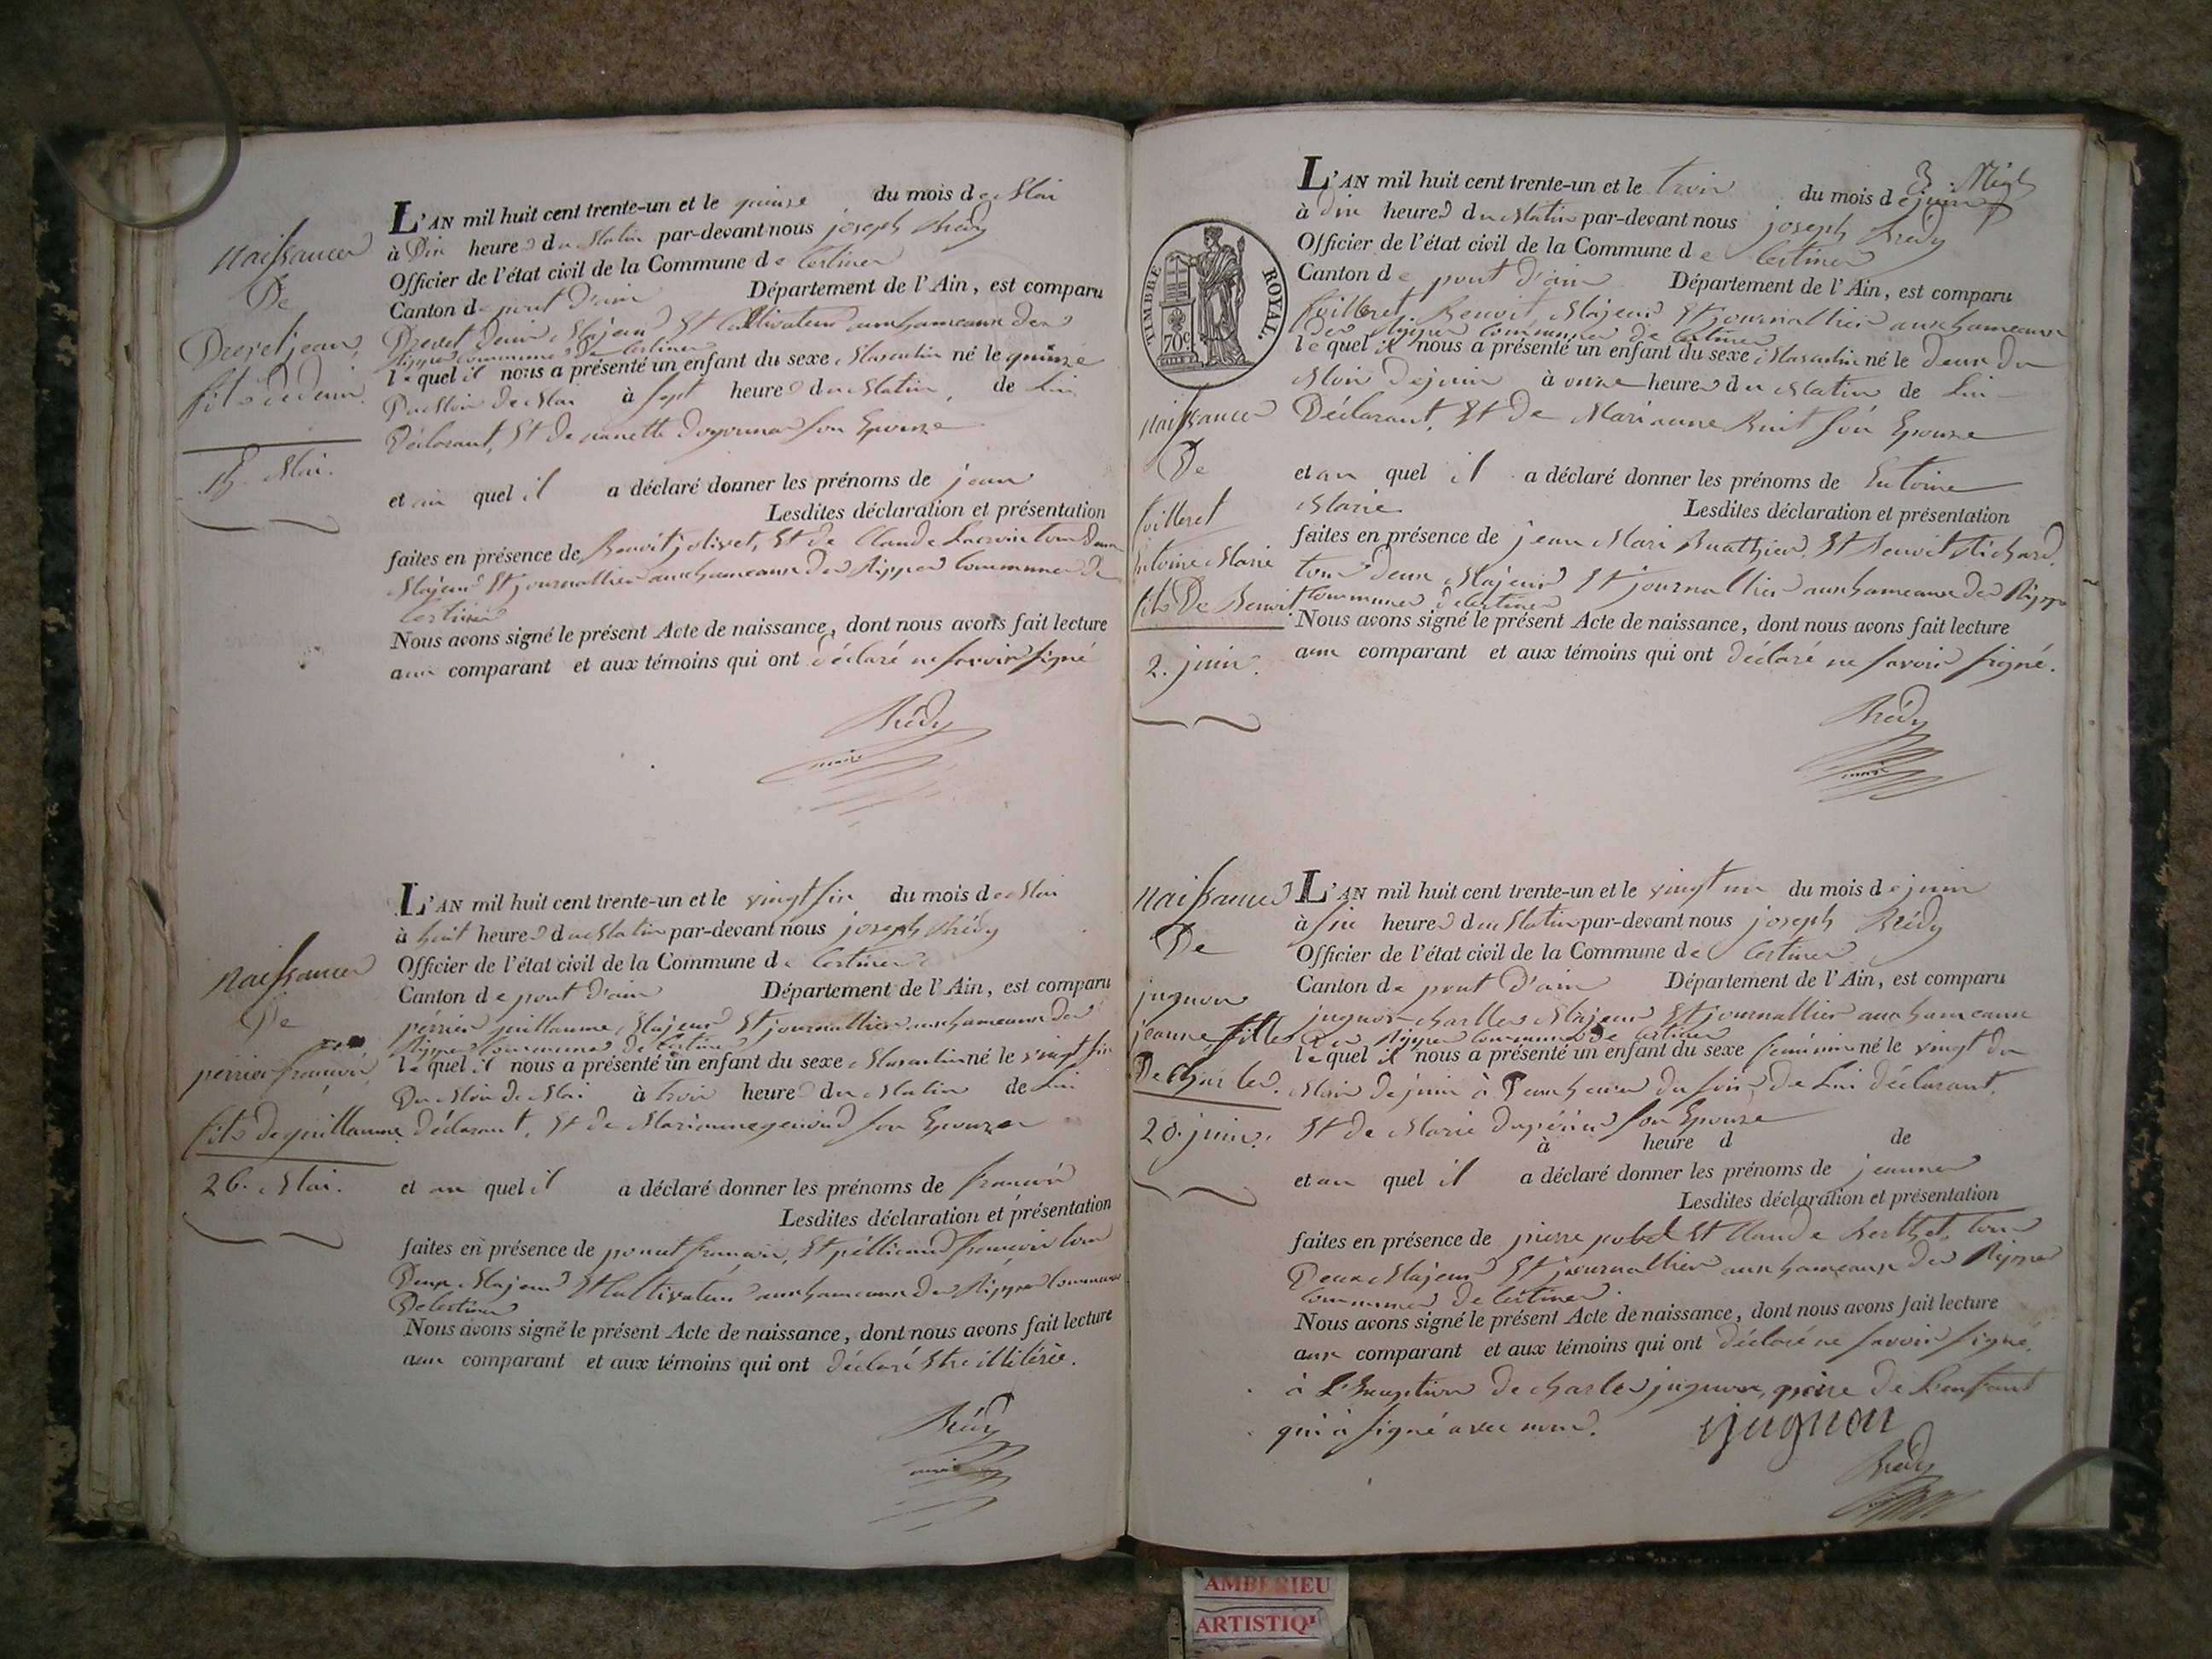 Naissance
De
Drevet jean
fils de denis
15. Mai.
L'AN mil huit cent trente-un et le quinze du mois de Mai
à Dix heures du Matin par-devant nous joseph Brédy
Officier de l'état civil de la Commune de Certines
Canton de pont d'ain Département de l'Ain, est comparu
Drevet Denis Majeur Et Cultivateur aux hameaux des
Rippes Commune De Certines
lequel il nous a présenté un enfant du sexe Masculin né le quinze
Du Mois de Mai à sept heures du Matin, de Lui
Déclarant, Et de nanette son Epouse
et au quel il a déclaré donner les prénoms de jean
Lesdites déclaration et présentation
faites en présence de Benoit jolivet, Et de Claude Lacroix tous Deux
Majeurs Et journallier aux hameaux des Rippes Commune de
Certines
Nous avons signé le présent Acte de naissance, dont nous avons fait lecture
aux comparant et aux témoins qui ont déclaré ne savoir signé
Brédy
maire
Naissance
De
perrier françois
fils de guillaume
26. Mai.
L'AN mil huit cent trente-un et le vingt six du mois de Mai
à huit heures du Matin par-devant nous joseph Brédy
Officier de l'état civil de la Commune de Certines
Canton de pont d'ain Département de l'Ain, est comparu
périer guillaume Majeur Et journallier aux hameaux des
Rippes Commune de Certines
lequel il nous a présenté un enfant du sexe Masculin né le vingt six
Du Mois de Mai à trois heures du Matin de Lui
déclarant, Et de Marianne son Epouse
et au quel il a déclaré donner les prénoms de françois
Lesdites déclaration et présentation
faites en présence de françois, Et françois tous
Deux Majeurs Et Cultivateurs aux hameaux des Rippes Commune
De Certines
Nous avons signé le présent Acte de naissance, dont nous avons fait lecture
aux comparant et aux témoins qui ont déclaré Etre illitérée.
Brédy
maire
TIMBRE ROYAL.
70c
Naissance
De
foilleret
Entoine Marie
fils De Benoit
2. juin.
L'AN mil huit cent trente-un et le trois du mois de juin
à dix heures du Matin par-devant nous joseph Brédy
Officier de l'état civil de la Commune de Certines
Canton de pont d'ain Département de l'Ain, est comparu
foilleret Benoit Majeur Et journallier aux hameaux
des Rippes Commune de Certines
lequel il nous a présenté un enfant du sexe Masculin né le deux du
Mois de juin à onze heures du Matin de Lui
Déclarant, Et de Marianne son Epouse
et au quel il a déclaré donner les prénoms de Entoine
Marie Lesdites déclaration et présentation
faites en présence de jean Mari Buathier, Et Benoit Richard,
tous deux Majeurs Et journallier aux hameaux des Rippes
Commune de Certines
Nous avons signé le présent Acte de naissance, dont nous avons fait lecture
aux comparant et aux témoins qui ont déclaré ne savoir signé.
Brédy
maire
Naissance
De
jugnon
jeanne fille
De Charles.
20. juin.
L'AN mil huit cent trente-un et le vingt un du mois de juin
à six heures du Matin par-devant nous joseph Brédy
Officier de l'état civil de la Commune de Certines
Canton de pont d'ain Département de l'Ain, est comparu
jugnon charlles Majeur Et journallier aux hameaux
des Rippes Commune de Certines
lequel il nous a présenté un enfant du sexe féminin né le vingt du
Mois de juin à heures du soir, de Lui déclarant,
Et de Marie dupérier son Epouse
à heure d de
et au quel il a déclaré donner les prénoms de jeanne
Lesdites déclaration et présentation
faites en présence de pierre Et Claude Berthet, tous
Deux Majeurs Et journallier aux hameaux des Rippes
Commune de Certines
Nous avons signé le présent Acte de naissance, dont nous avons fait lecture
aux comparant et aux témoins qui ont déclaré ne savoir signé,
à L'Exception de charles jugnon, père de L'enfant
qui a signé avec nous.
jugnon
Brédy
AMBERIEU
ARTISTIQ